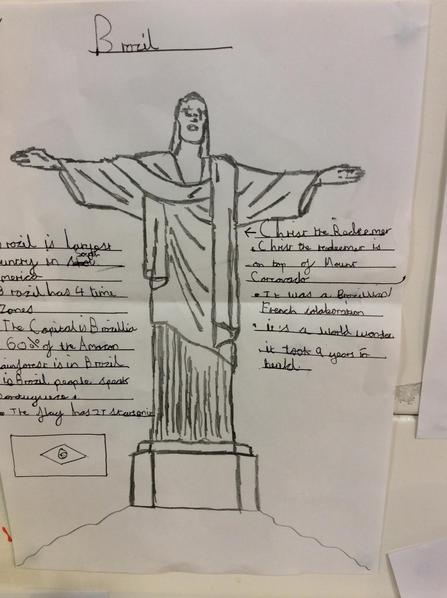 Brazil
razil is largest
untry in south
merica
Brazil has 4 time
zones
The Capital is Brazillia
60% of the Amazon
ainforest is in Brazil
is Brazil people speak
ortuguese
• The flag has 27 stars on it
← Christ the Redeemer
• Christ the redeemer is
on top of Mount
Corcovado
• It was a Brazillian/
French colaboration
• it's a world wonder
it took 9 years to
build